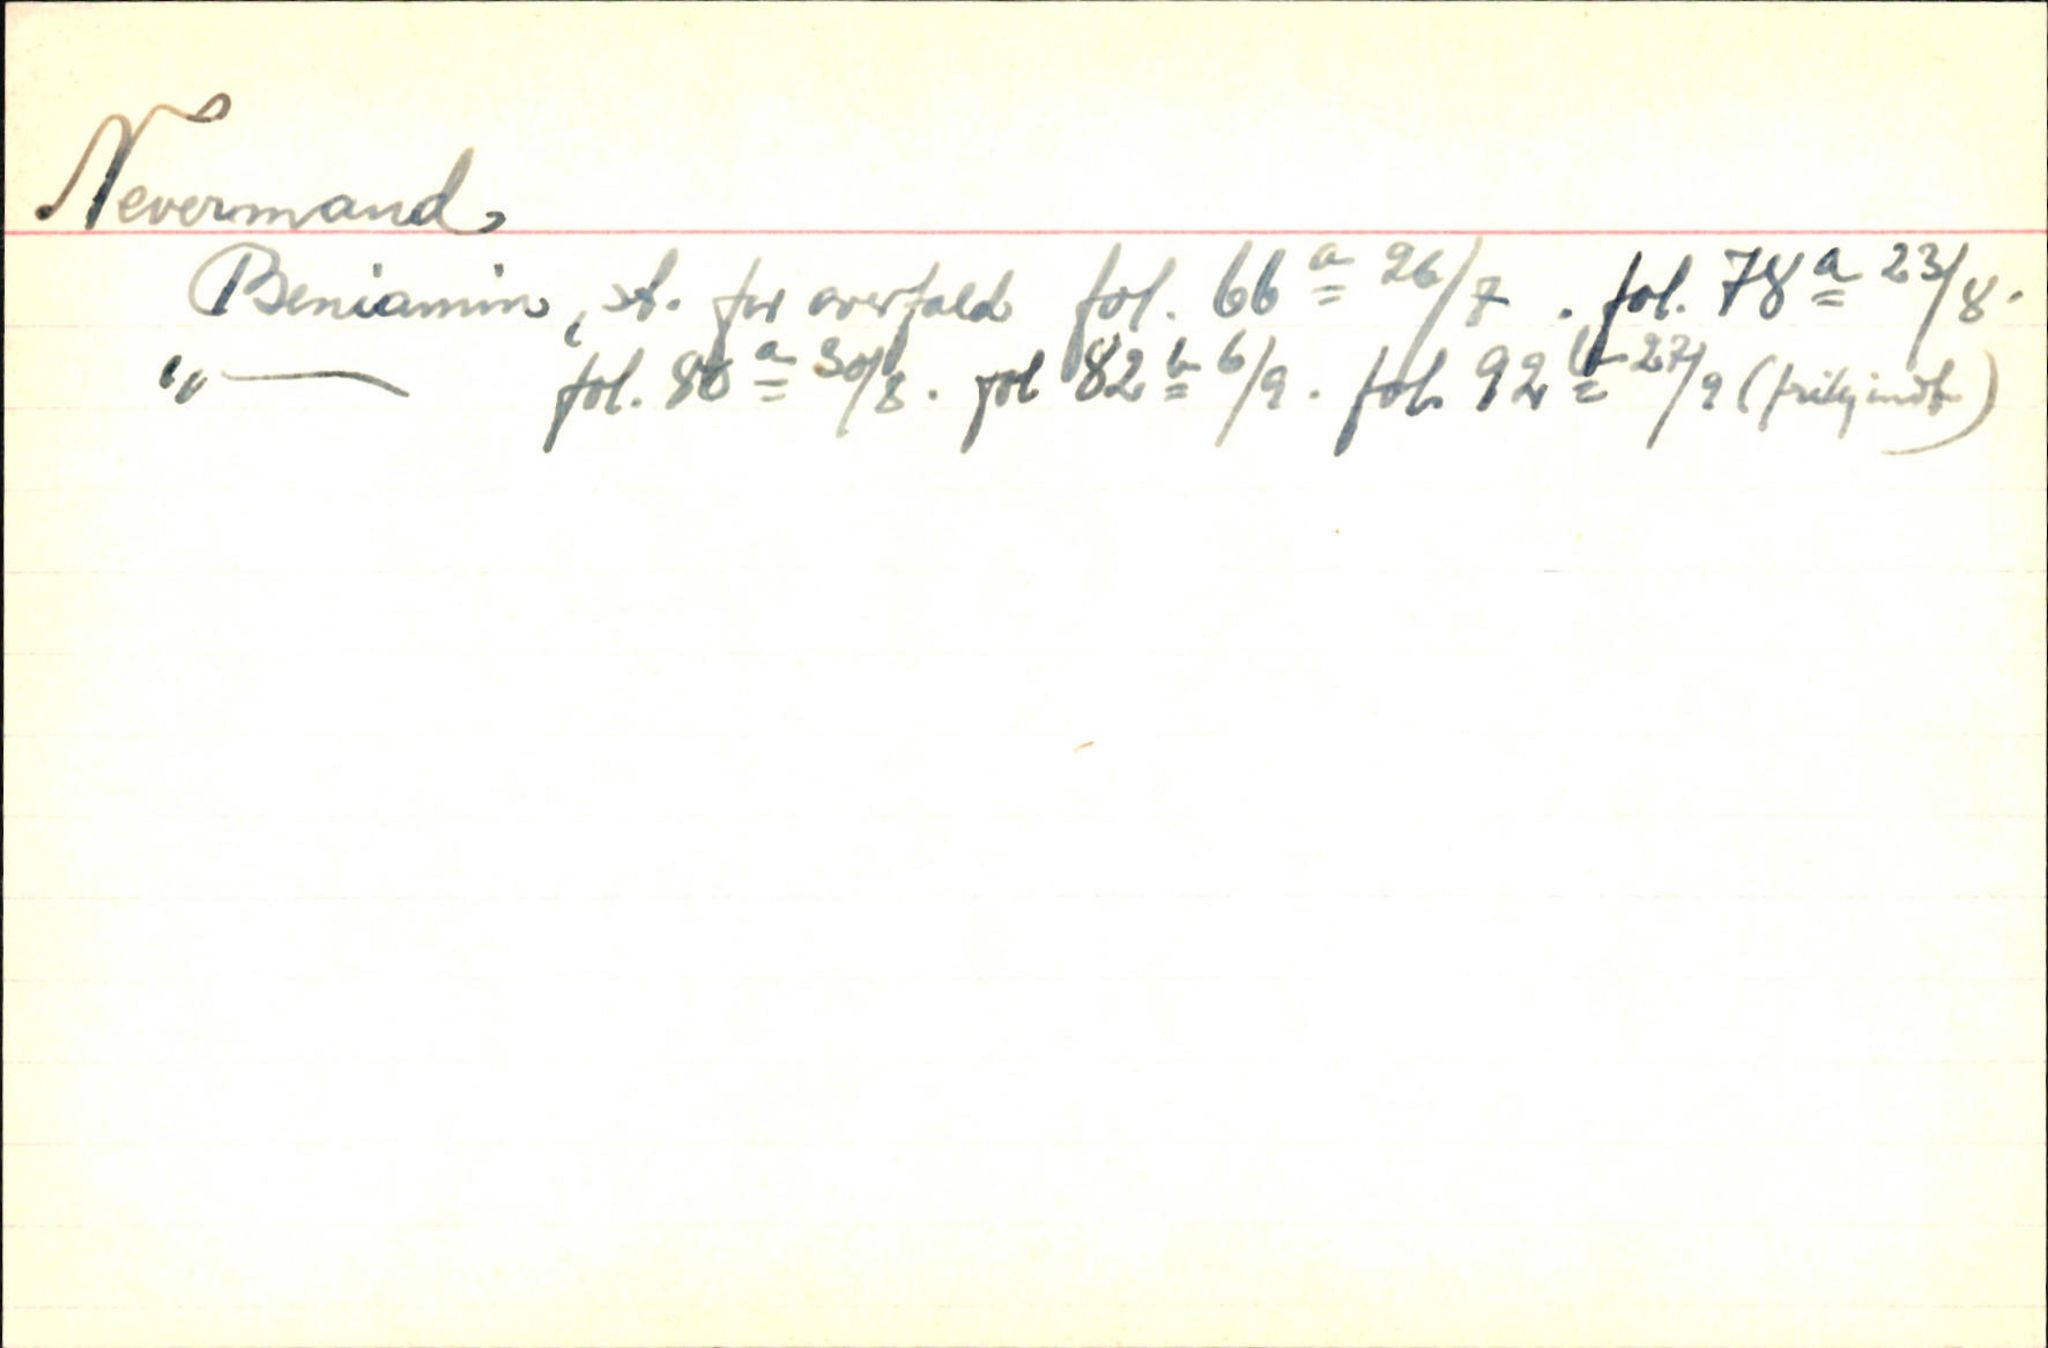 Nevermand
Beniamin, st. for overfald fol. 66 a 26/7 . fol. 78 a 23/8.
"— fol. 80 a 30/8 . fol 82 b 6/9 . fol. 92 b 27/9